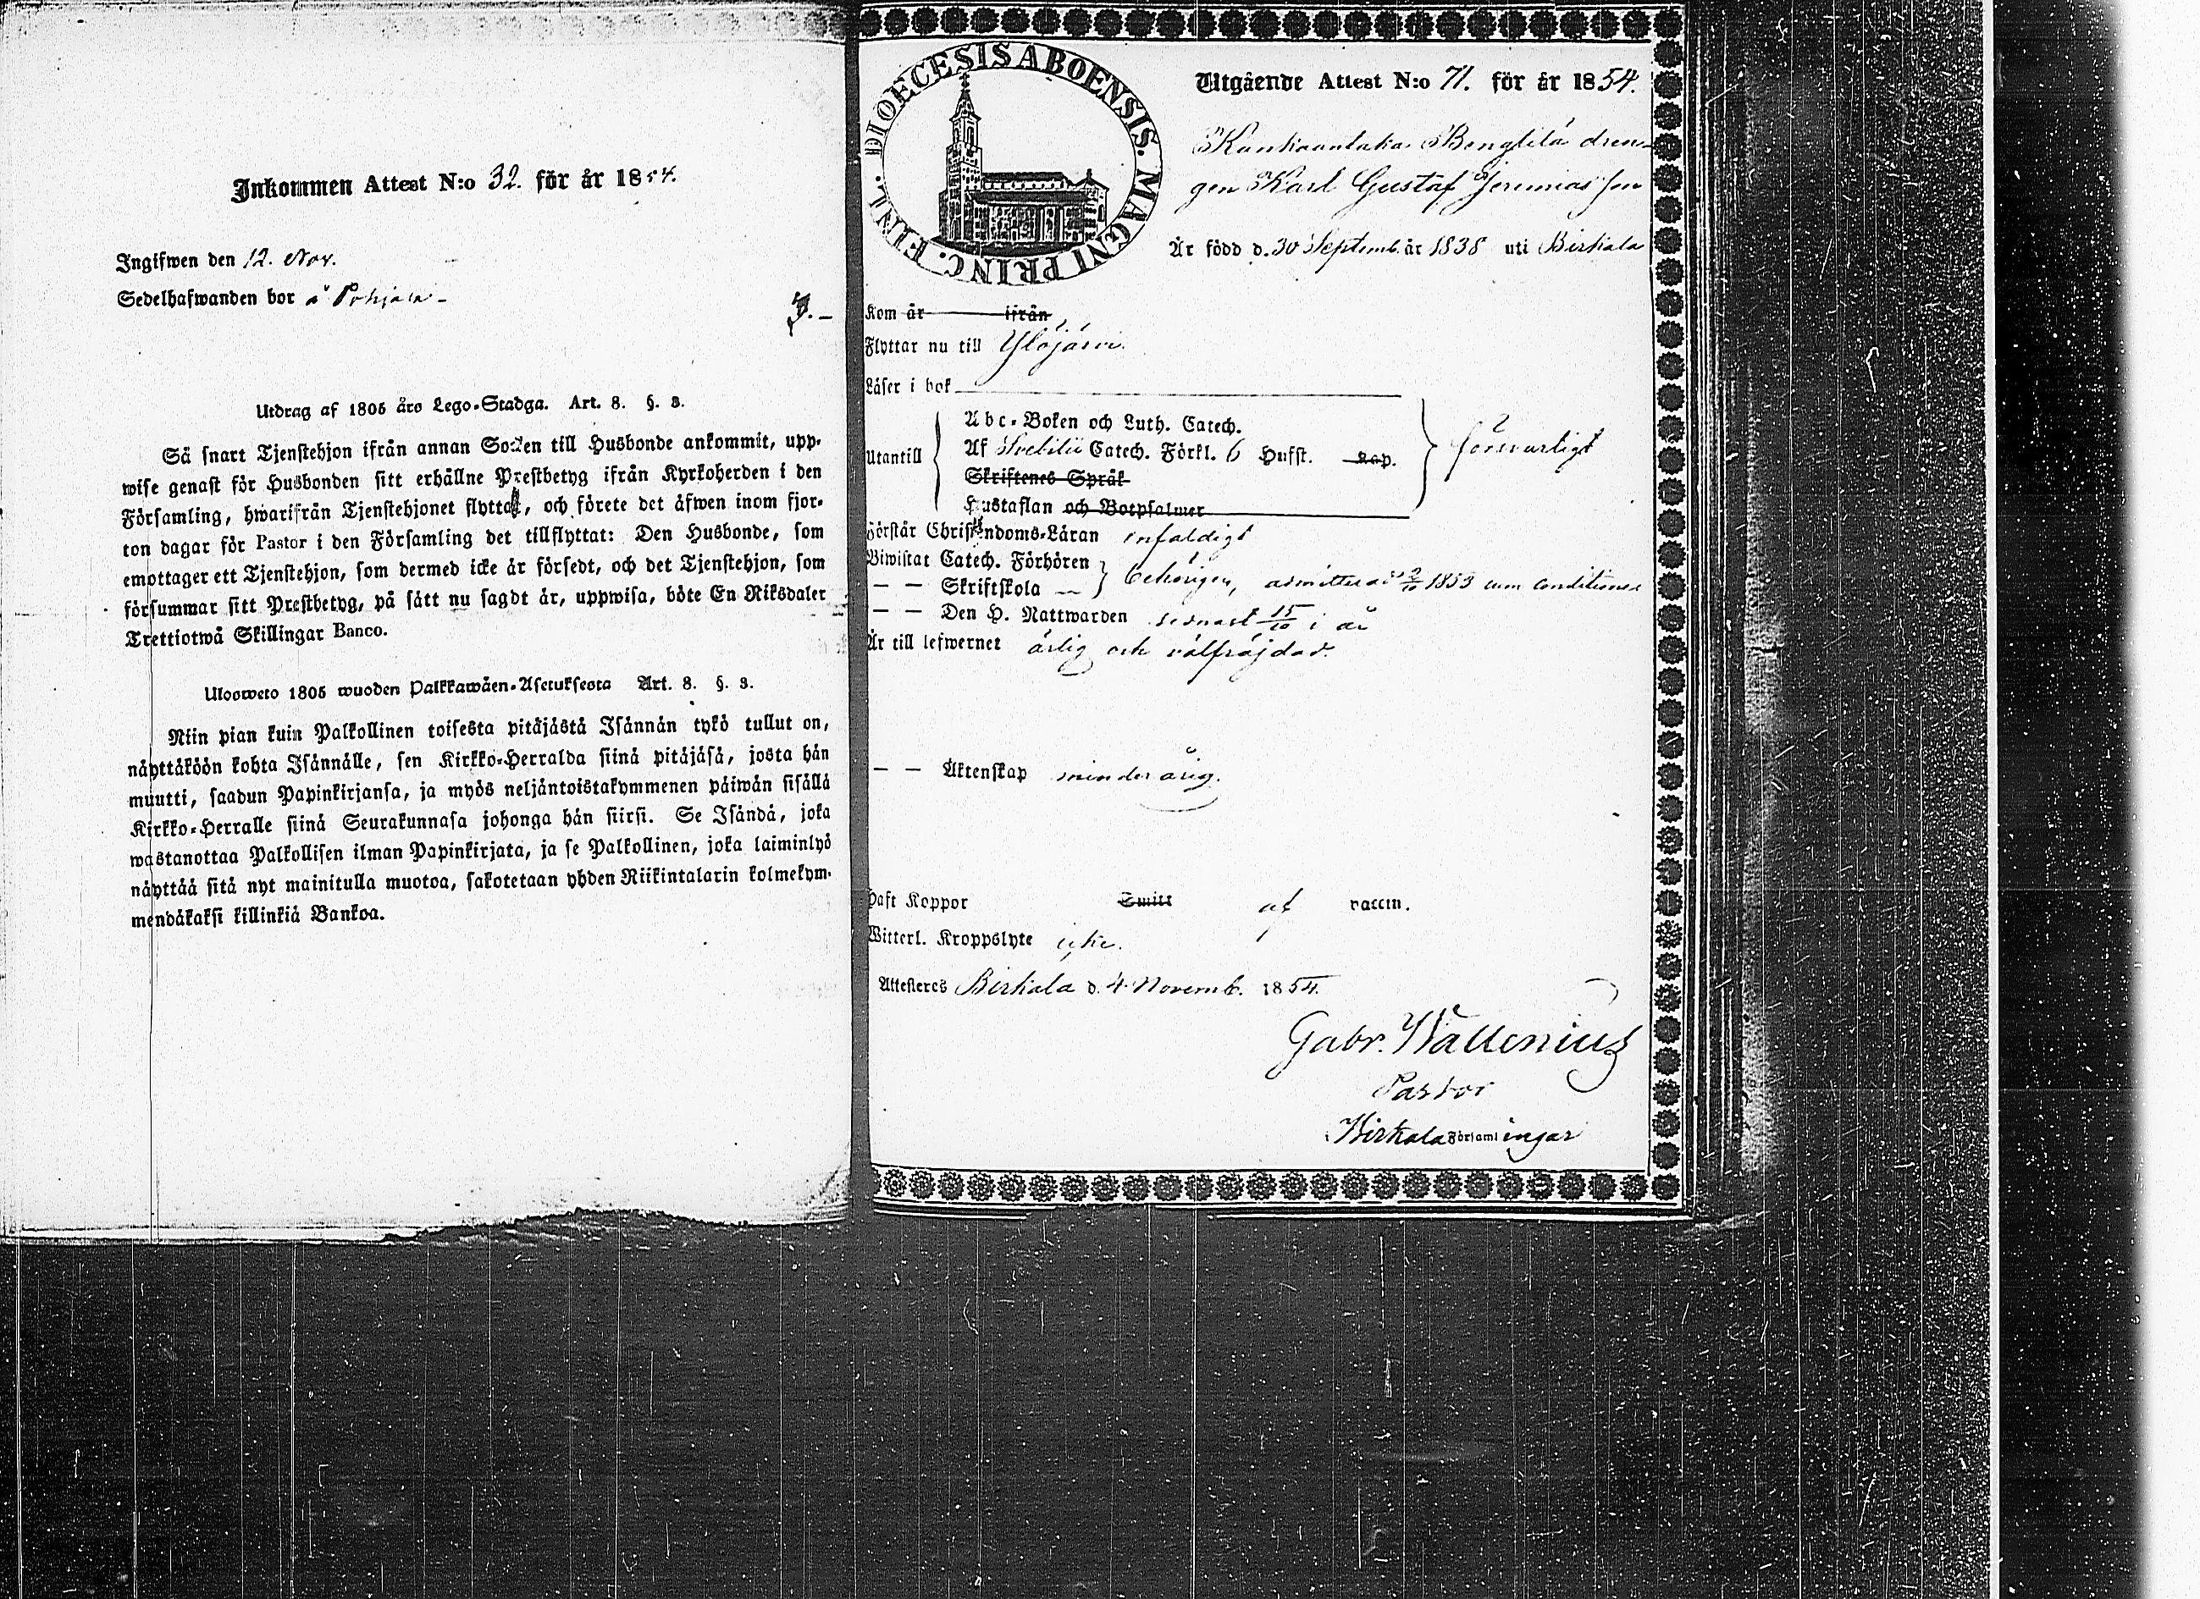 Inkommen Attest N:o 32. för år 1854.
Ingifwen den 12. Nov.
Sedelhafwanden bor å Pohjala
Utdrag af 1805 års Lego-Stadga. Art. 8. §. 3.
Så snart Tjenstehjon ifrån annan Socken till Husbonde ankommit, upp-
wise genast för Husbonden sitt erhållne Prestbetyg ifrån Kyrkoherden i den
Församling, hwarifrån Tjenstehjonet flyttat, och förete det äfwen inom fjor-
ton dagar för Pastor i den Församling det tillflyttat: Den Husbonde, som
emottager ett Tjenstehjon, som dermed icke är försedt, och det Tjenstehjon, som
försummar sitt Prestbetyg, på sätt nu sagdt är, uppwisa, böte En Riksdaler
Trettiotwå Skillingar Banco.
Ulosweto 1805 wuoden Palkkawäen-Asetuksesta Art. 8. §. 3.
Niin pian kuin Palkollinen toisesta pitäjästä Isännän tykö tullut on,
näyttäköön kohta Isännälle, sen Kirkko-Herralda siinä pitäjäsä, josta hän
muutti, saadun Papinkirjansa, ja myös neljäntoistakymmenen päiwän sisällä
Kirkko-Herralle siinä Seurakunnasa johonga hän siirsi. Se Isändä, joka
wastanottaa Palkollisen ilman Papinkirjata, ja se Palkollinen, joka laiminlyö
näyttää sitä nyt mainitulla muotoa, sakotetaan yhden Riikintalarin kolmekym-
mendäkaksi killinkiä Bankoa.
DIOECESIS ABOENSIS. MAGNI PRINC. FINL.
Utgående Attest N:o 71. för år 1854.
Kankaantaka Bengtilä dren-
gen Karl Gustaf Jeremiasson
Är född d. 30 Septemb. år 1838 uti Birkala
Kom år ifrån
Flyttar nu till Ylöjärvi.
Läser i bok
Utantill
Abc-Boken och Luth. Catech.
Af Svebilii Catech. Förkl. 6 Hufst. Kap.
Skriftenes Språk
Hustaflan och Botpsalmer
försvarligt
Förstår Christendoms-Läran enfaldigt
Biwistat Catech. Förhören
— — Skriftskola
behörigen, admitterad 2/10 1853 cum conditione
— — Den H. Nattwarden sednast 15/10 i år
Är till lefwernet ärlig och välfräjdad.
— — Äktenskap minderårig.
Haft Koppor Smitt af vaccin.
Witterl. Kroppslyte icke.
Attesteres Birkala d. 4 Novemb. 1854.
Gabr. Wallenius
Pastor
Birkala Församlingar